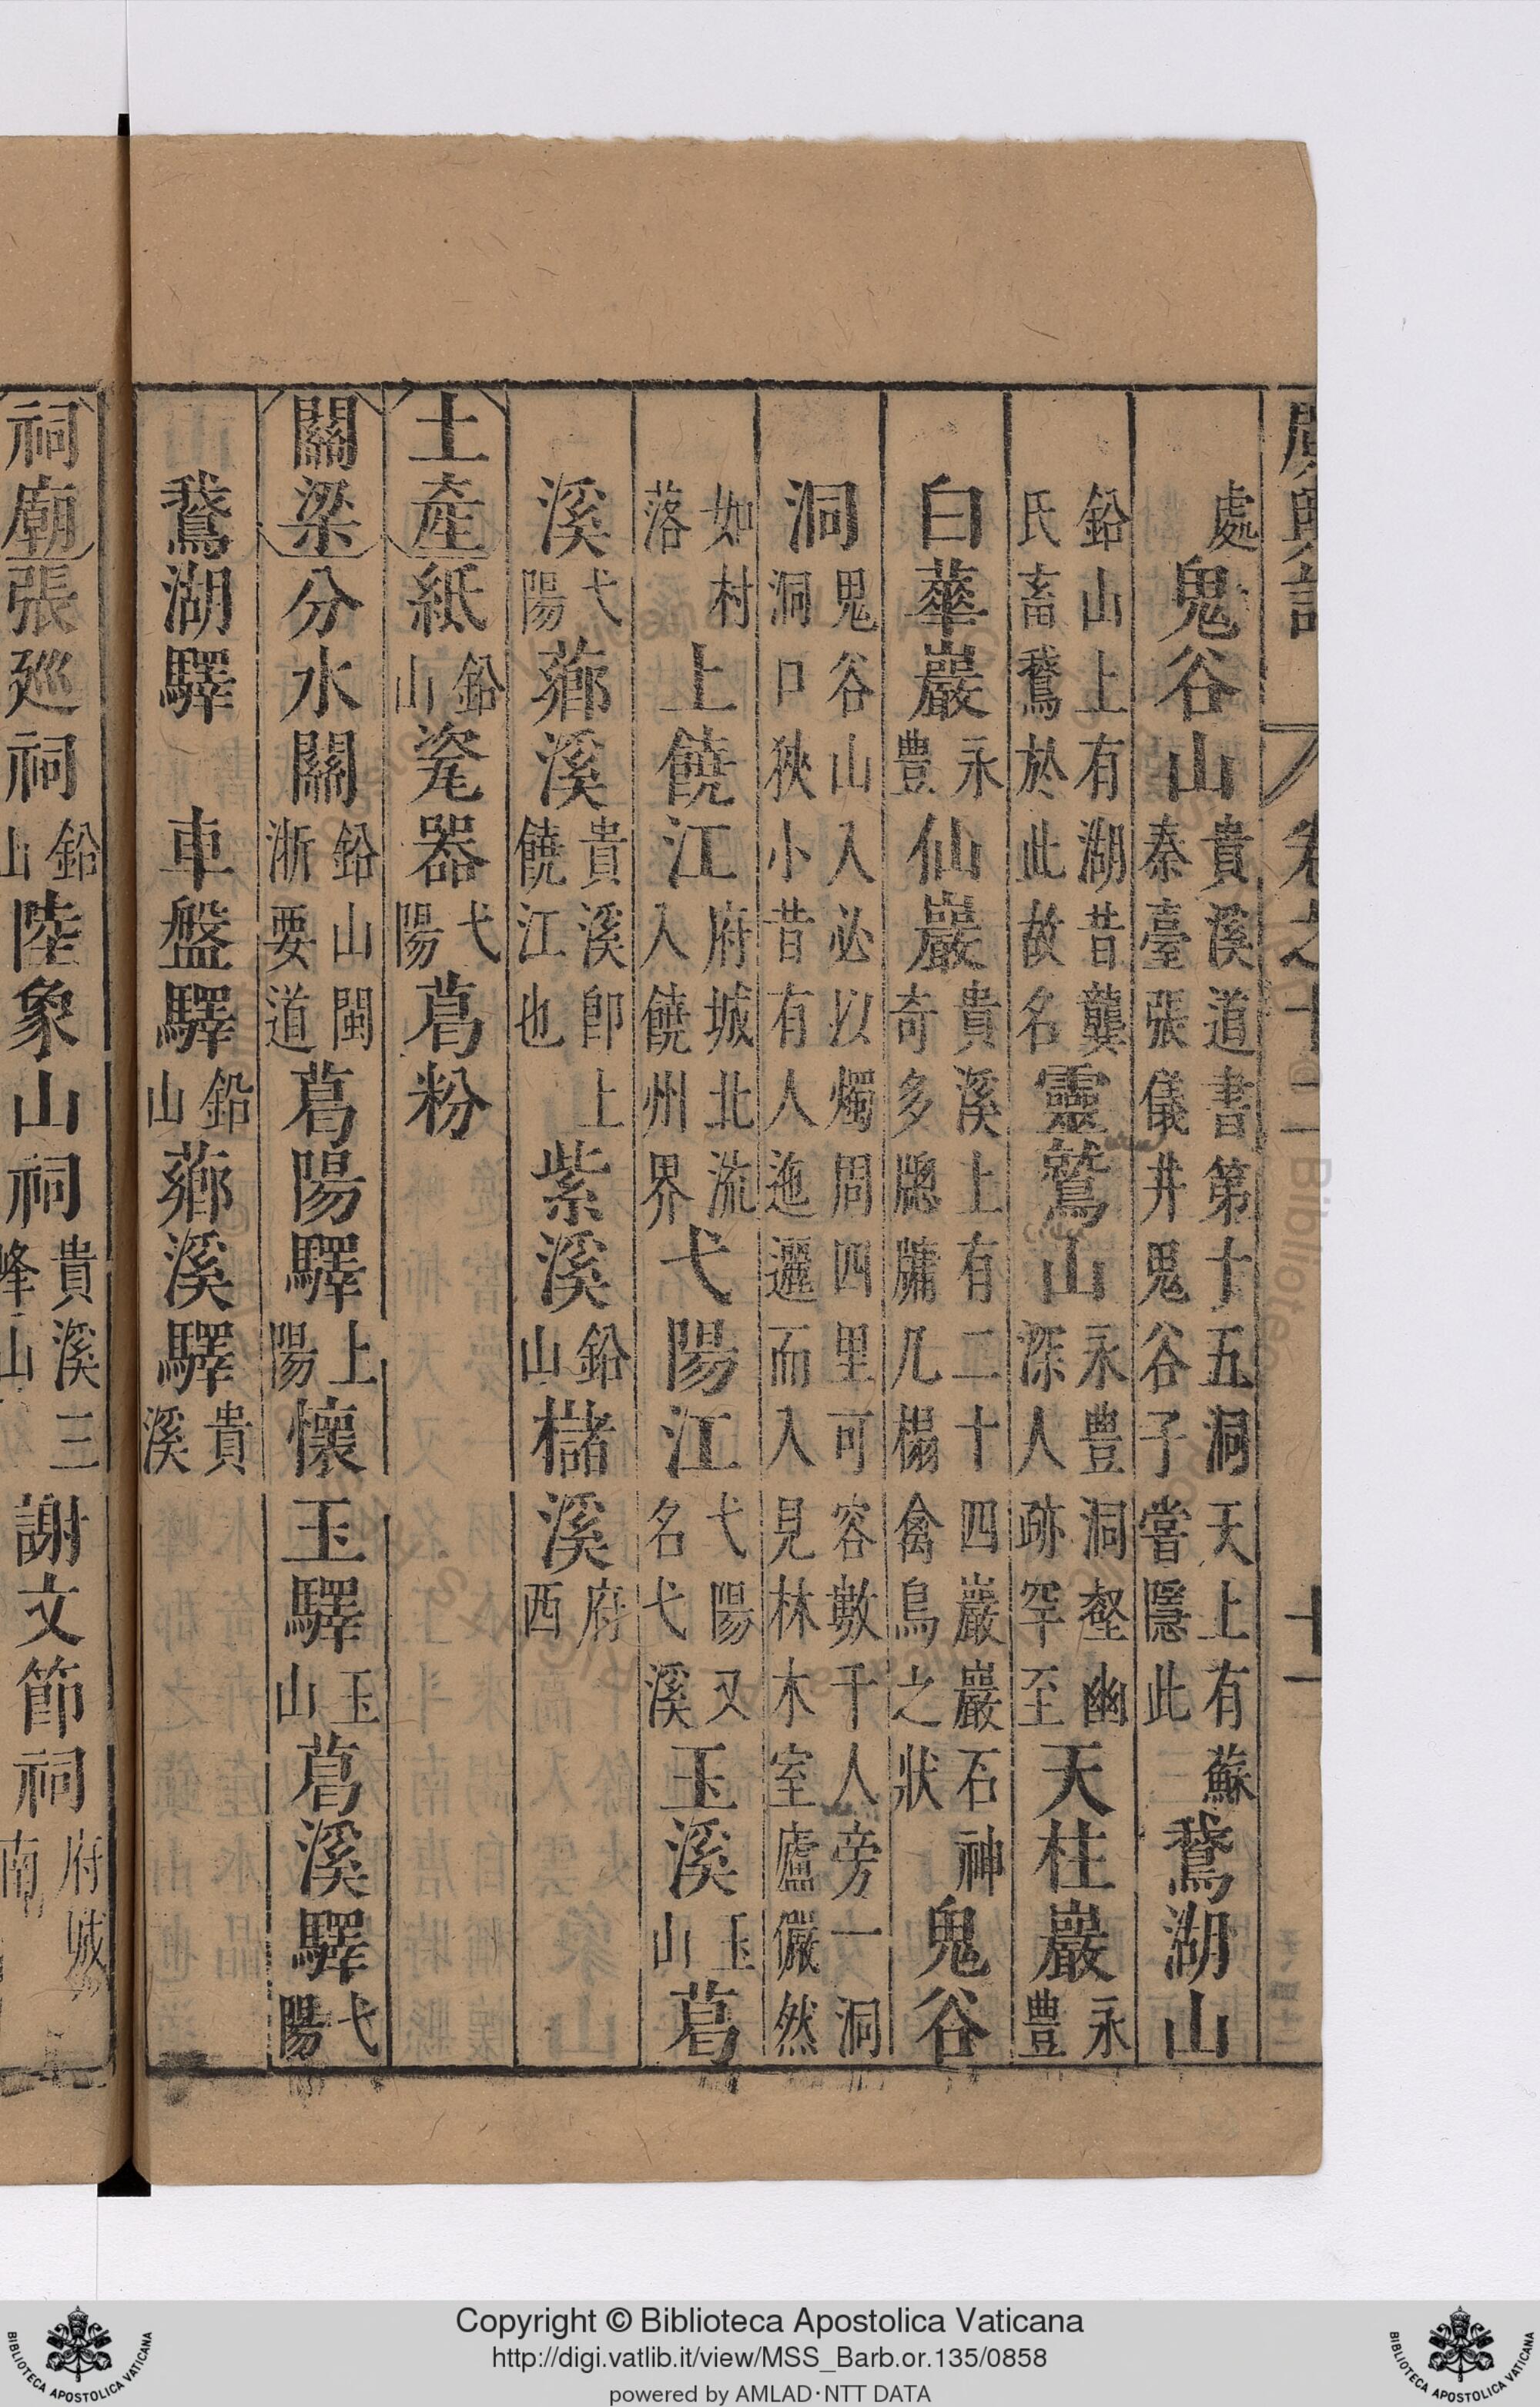 廣輿記 卷之十二 十一
處鬼谷山貴溪道書第十五洞天上有蘇秦臺張儀井鬼谷子嘗隱此鵞湖山
鉛山上有湖昔龔氏畜鵞於此故名靈鷲山永豊洞壑幽深人跡罕至天柱巖永豊
白華巖永豊仙巖貴溪上有二十四巖巖石神奇多牕牗几榻禽鳥之狀鬼谷
洞鬼谷山入必以燭周四里可容數千人旁一洞洞口狹小昔有人迤邐而入見林木室廬儼然
如村落上饒江府城北流入饒州界弋陽江弋陽又名弋溪玉溪玉山葛
溪弋陽薌溪貴溪卽上饒江也紫溪鉛山櫧溪府西
土產紙鉛山瓷器弋陽葛粉
關梁分水關鉛山閩浙要道葛陽驛上陽懷玉驛玉山葛溪驛弋陽
鵞湖驛 車盤驛鉛山薌溪驛貴溪
祠廟張巡祠鉛山陸象山祠貴溪三峰山謝文節祠府城南
Copyright © Biblioteca Apostolica Vaticana
http://digi.vatlib.it/view/MSS_Barb.or.135/0858
powered by AMLAD·NTT DATA
BIBLIOTECA APOSTOLICA VATICANA
BIBLIOTECA APOSTOLICA VATICANA